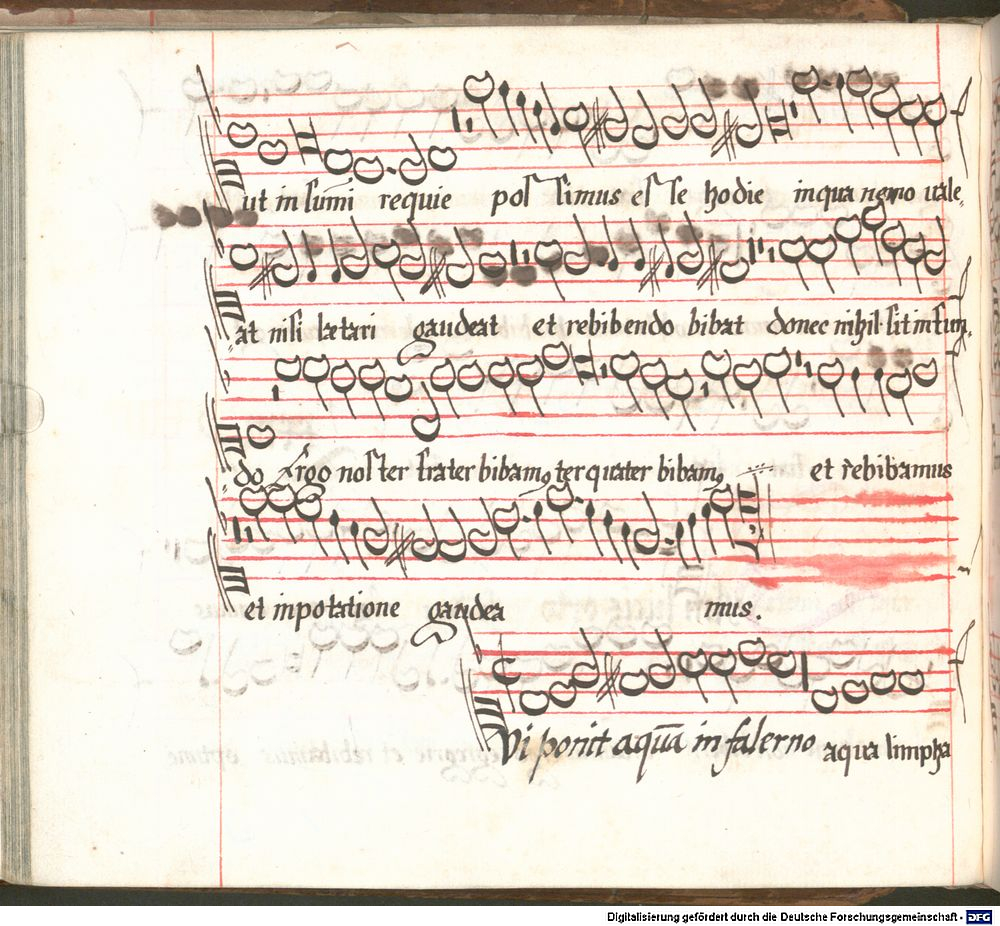 ut in sum̅i requie pos simus es se hodie in qua nemo uale„
„at nisi lætari gaudeat et rebibendo bibat donec nihil sit in fun„
„do Ergo noster frater bibamꝰ ter quater bibamꝰ et rebibamus
et in potatione gaudea mus.
Vi ponit aqua̅ in falerno aqua limpha
Digitalisierung gefördert durch die Deutsche Forschungsgemeinschaft - DFG